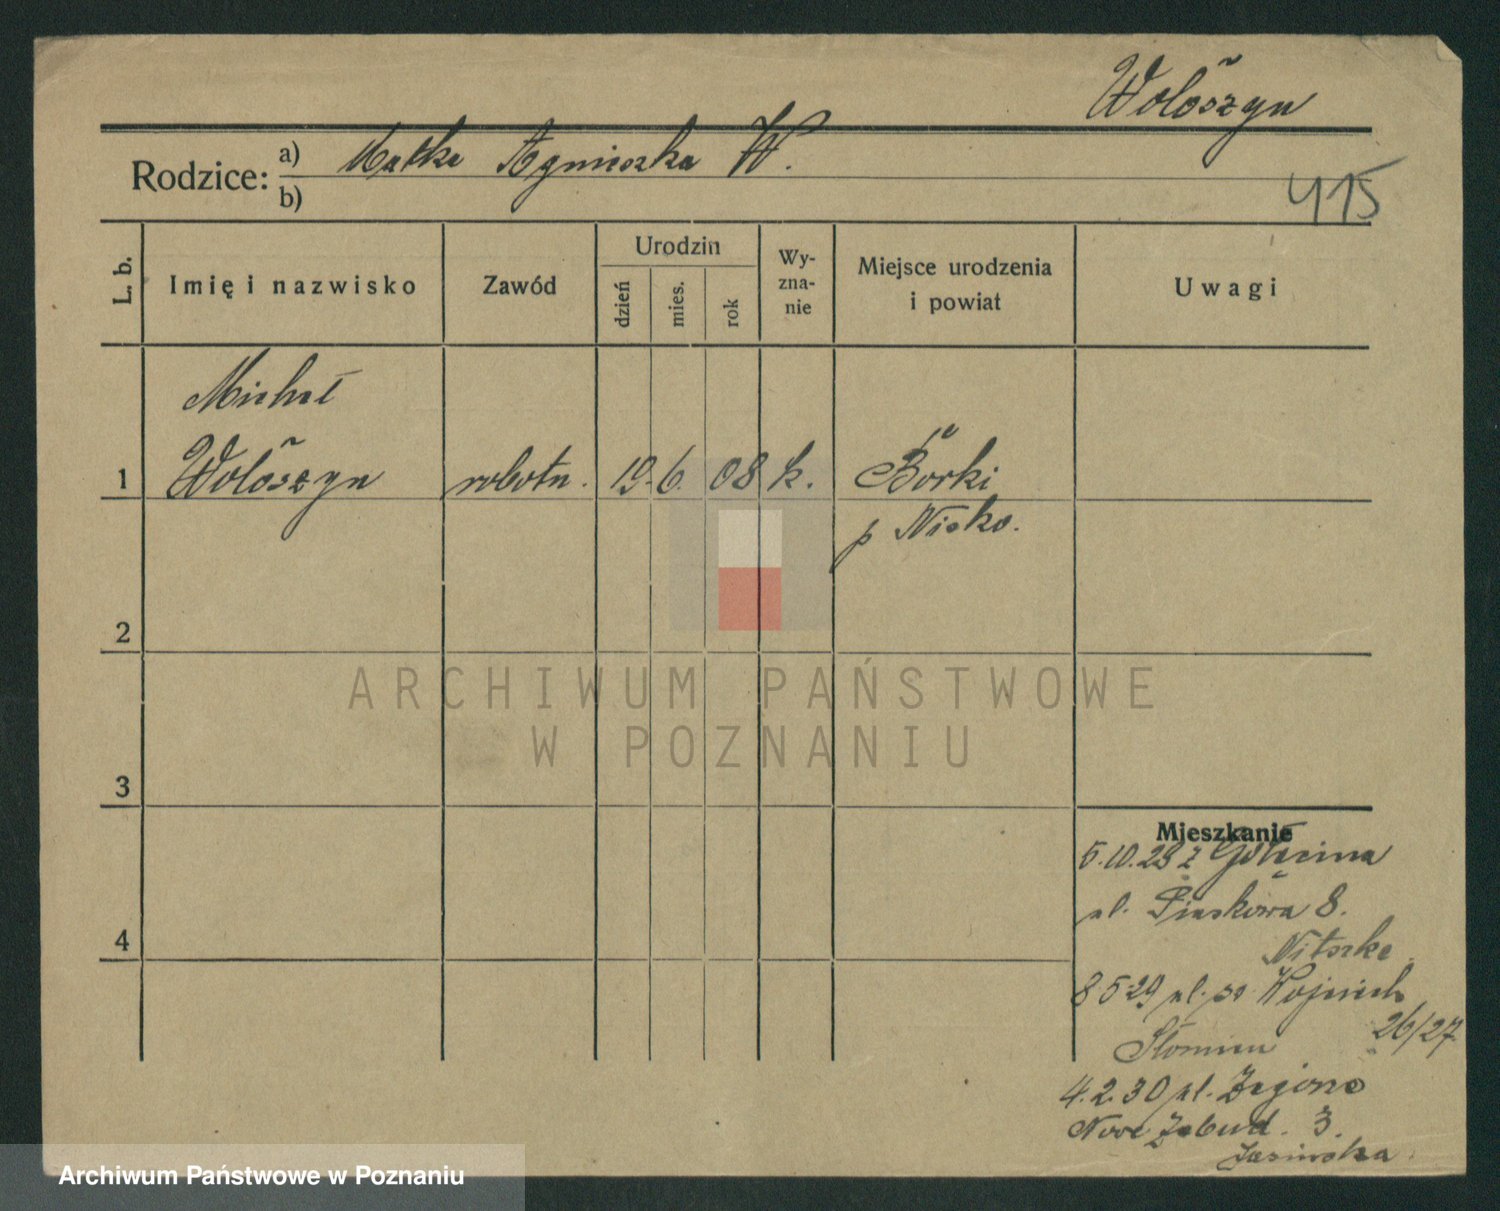 Wołoszyn
Rodzice:
a) Matka Agnieszka W.
b)
415
L. b.
Imię i nazwisko
Zawód
Urodzin
dzień
mies.
rok
Wy-
zna-
nie
Miejsce urodzenia
i powiat
Uwagi
Michał
1 Wołoszyn robotn. 19. 6. 08 k. Borki
p Nisko.
2
ARCHIWUM PAŃSTWOWE
W POZNANIU
3
Mieszkanie
5.10.28 z Golęcina
ul. Piaskowa 8.
Nitschke
4
8 5 29 pl. św Wojciech
26/27
Słomian
4.2.30 ul.
Nove Zabud. 3.
Jasińska
Archiwum Państwowe w Poznaniu